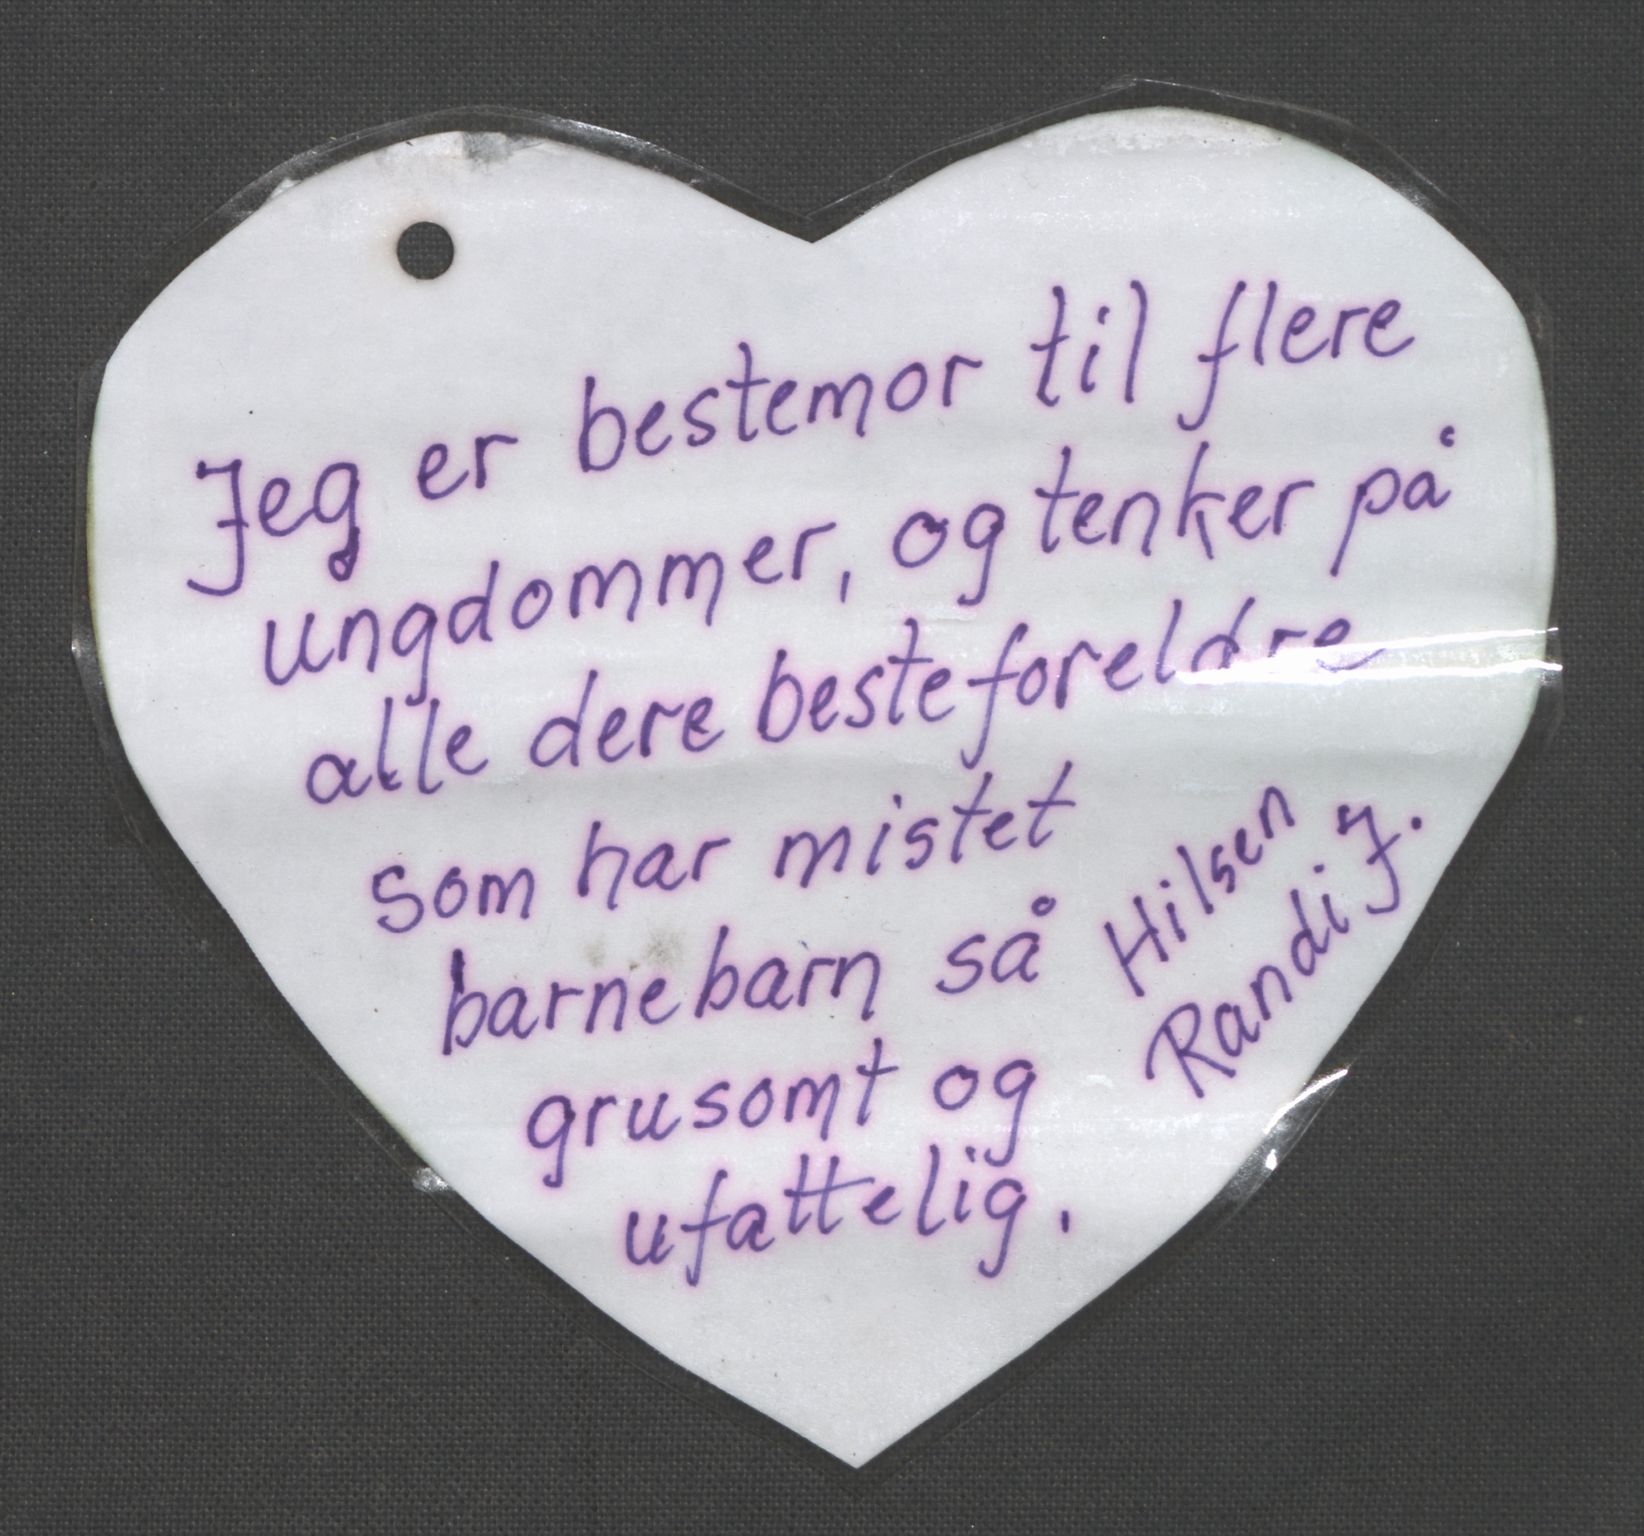 Jeg er bestemor til flere
ungdommer, og tenker på
alle dere besteforeldre
som har mistet
barnebarn så
grusomt og
ufattelig.
Hilsen
Randi J.